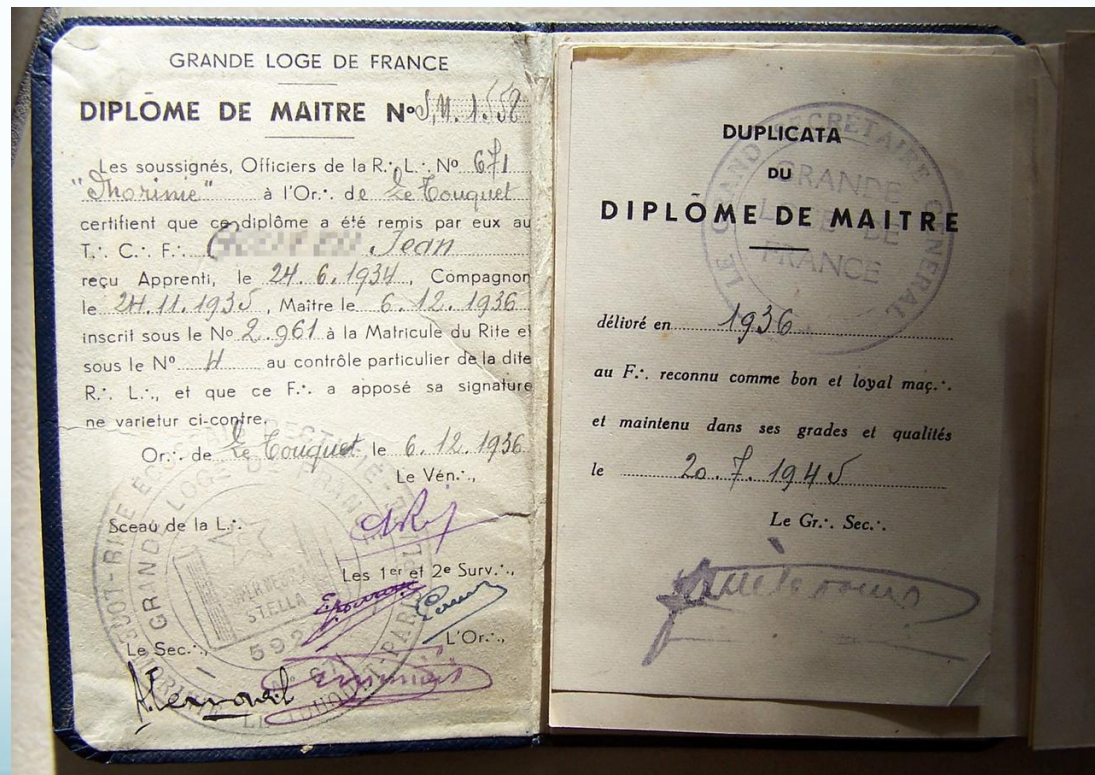 GRANDE LOGE DE FRANCE
DIPLÔME DE MAITRE Nº S.N. 1.558
Les soussignés, Officiers de la R∴ L∴ Nº 671
"Thorinie" à l'Or∴ de Le Touquet
certifient que ce diplôme a été remis par eux au
T∴ C∴ F∴ Jean
reçu Apprenti, le 24.6.1934, Compagnon
le 24.11.1935, Maitre le 6.12.1936
inscrit sous le Nº 2.961 à la Matricule du Rite et
sous le Nº 4 au contrôle particulier de la dite
R∴ L∴, et que ce F∴ a apposé sa signature
ne varietur ci-contre.
Or∴ de Le Touquet le 6.12.1936
Le Vén∴,
Sceau de la L∴
Les 1er et 2e Surv∴,
STELLA
592
Le Sec∴,
L'Or∴,
GRANDE LOGE DE FRANCE
DUPLICATA
DU
DIPLÔME DE MAITRE
LE GRAND SECRETAIRE GENERAL
GRANDE
LOGE DE
FRANCE
délivré en 1936
au F∴ reconnu comme bon et loyal maç∴
et maintenu dans ses grades et qualités
le 20.7.1945
Le Gr∴ Sec∴